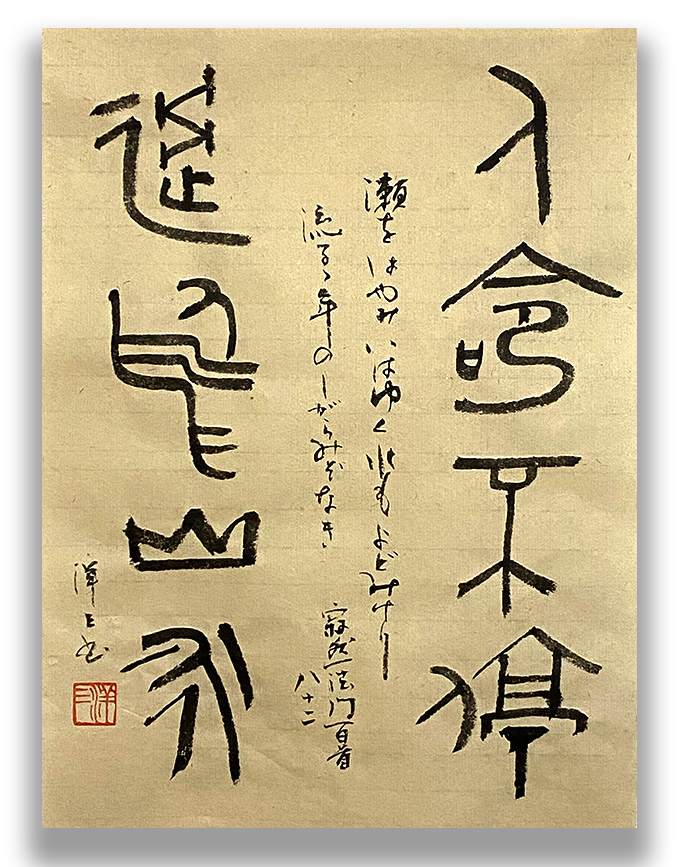 人命不停
瀬をはやみいはゆく水もよどみけり
流るゝ年のしがらみぞなき
寂然法門百首
八十二
過於山水
洋三書
洋三